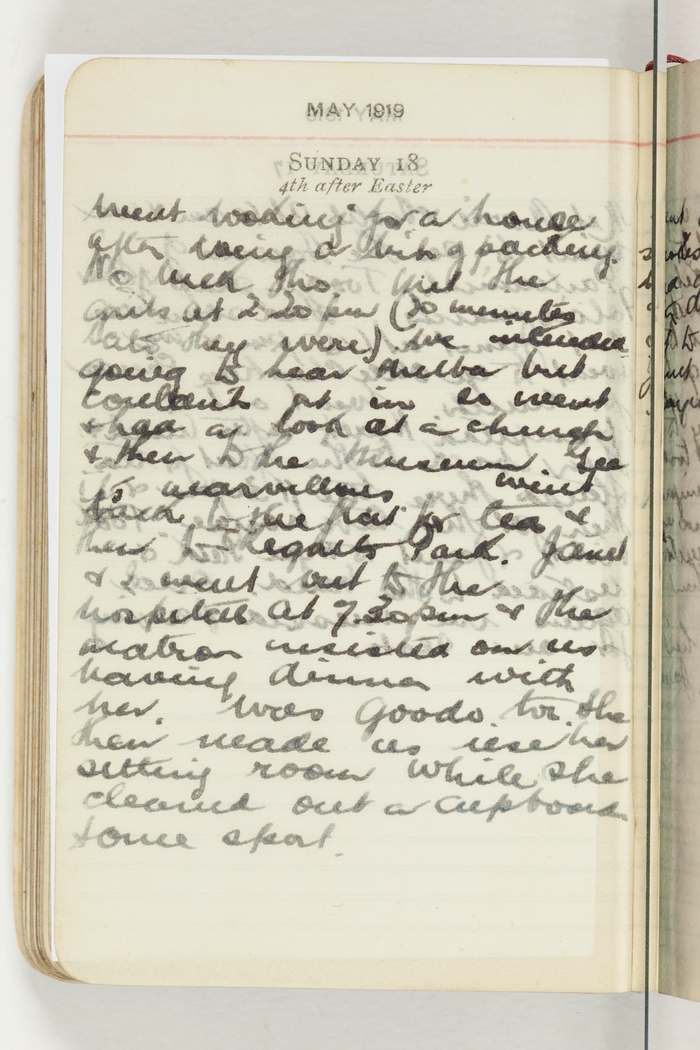 MAY 1919
SUNDAY 18
4th after Easter
Went looking for a house
after doing a bit of packing.
No luck tho. Met the
girls at 2.20 pm (20 minutes
late they were). We intended
going to hear Melba but
couldnt get in so went
& had a look at a church
& then to the Museum Gee
its marvellous went
back to the flat for tea &
then to Regents Park. Janet
& I went out to the
hospital at 7.30pm & the
matron insisted on us
having dinner with
her. Was goodo. too. She
then made us use her
sitting room while she
cleaned out a cupboard
Some sport.